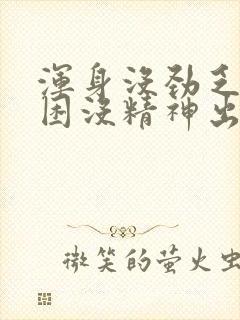 渾身沒勁乏
困沒精神出
微笑的萤火虫